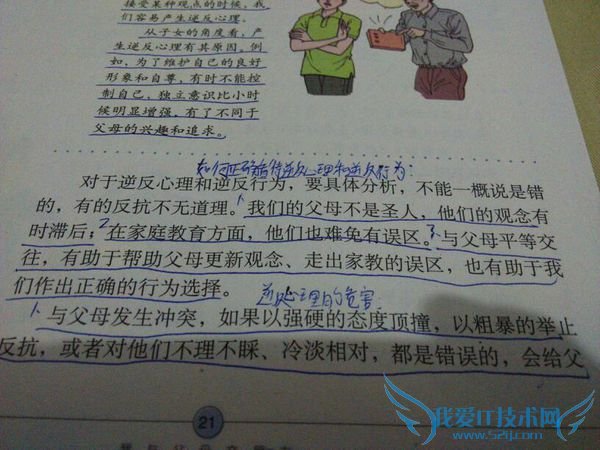 接受某种观点的时候，我
们容易产生逆反心理。
从子女的角度看，产
生逆反心理有其原因。例
如，为了维护自己的良好
形象和自尊，有时不能控
制自己，独立意识比小时
候明显增强，有了不同于
父母的兴趣和追求。
如何正确看待逆反心理和逆反行为：
对于逆反心理和逆反行为，要具体分析，不能一概说是错
的，有的反抗不无道理。1、我们的父母不是圣人，他们的观念有
时滞后；2、在家庭教育方面，他们也难免有误区。3、与父母平等交
往，有助于帮助父母更新观念、走出家教的误区，也有助于我
们作出正确的行为选择。
逆反心理的危害：
1、与父母发生冲突，如果以强硬的态度顶撞，以粗暴的举止
反抗，或者对他们不理不睬、冷淡相对，都是错误的，会给父
21
我爱IT技术网
www.52ij.com